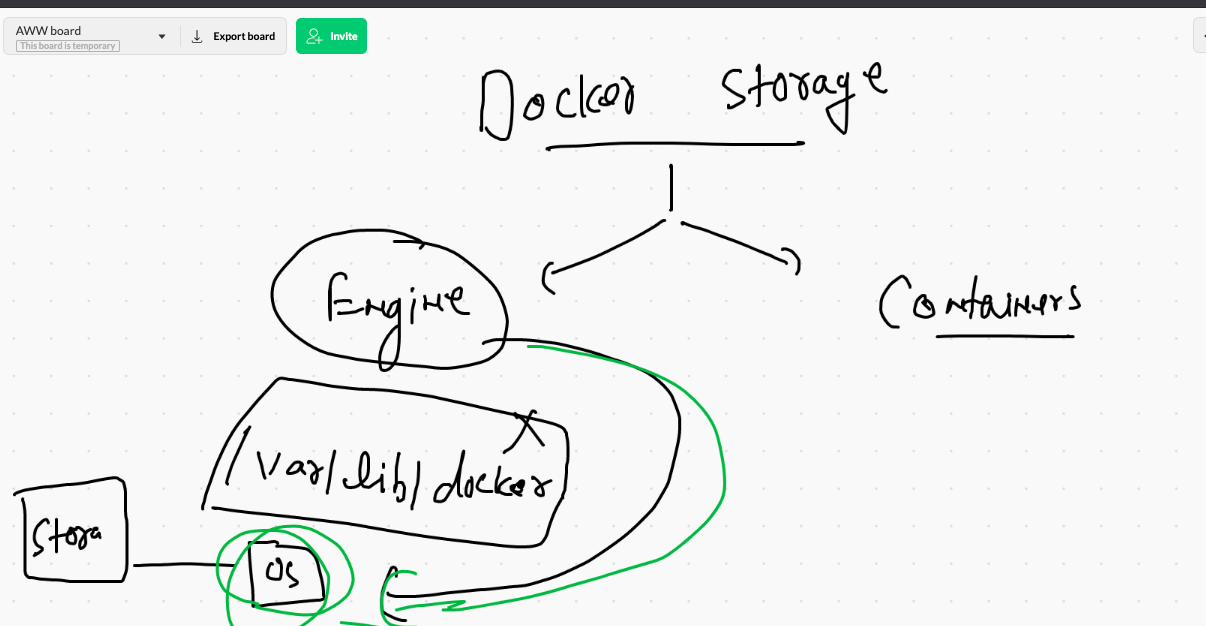 AWW board
This board is temporary
Export board
Invite
Docker Storage
Engine
Containers
/var/lib/docker
Stora
OS